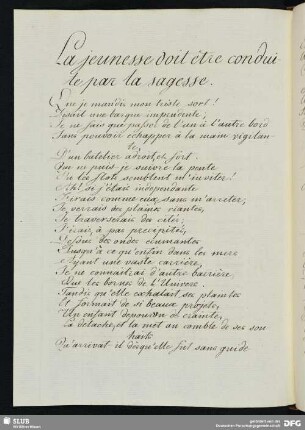 La jeunesse doit être condui
te par la sagesse.
Que je maudis mon triste sort!
Disait une barque imprudente,
Je ne fais que passer de l'un à l'autre bord
Sans pouvoir échapper à la main vigilan-
te,
D'un batelier adroit et fort.
Que ne puis-je suivre la pente
Où les flots semblent m'inviter!
Ah! si j'étais independante
J'irais comme eux, sans m'arreter,
Je verrais des plaines riantes,
Je traverserais des cités;
J'irais, à pas precipités,
Dessus des ondes ecumantes
Jusqu'à ce qu'enfin dans les mers
Ayant une vaste carrière,
Je ne connaitrai d'autre barrière
Que les bornes de l'Univers.
Tandis qu'elle exhalait ses plaintes
Et formait de si beaux projets,
Un enfant depourvu de craintes,
La detache, et la met au comble de ses sou
haits
Qu'arrivat il dès qu'elle fut sans guide
SLUB
DFG